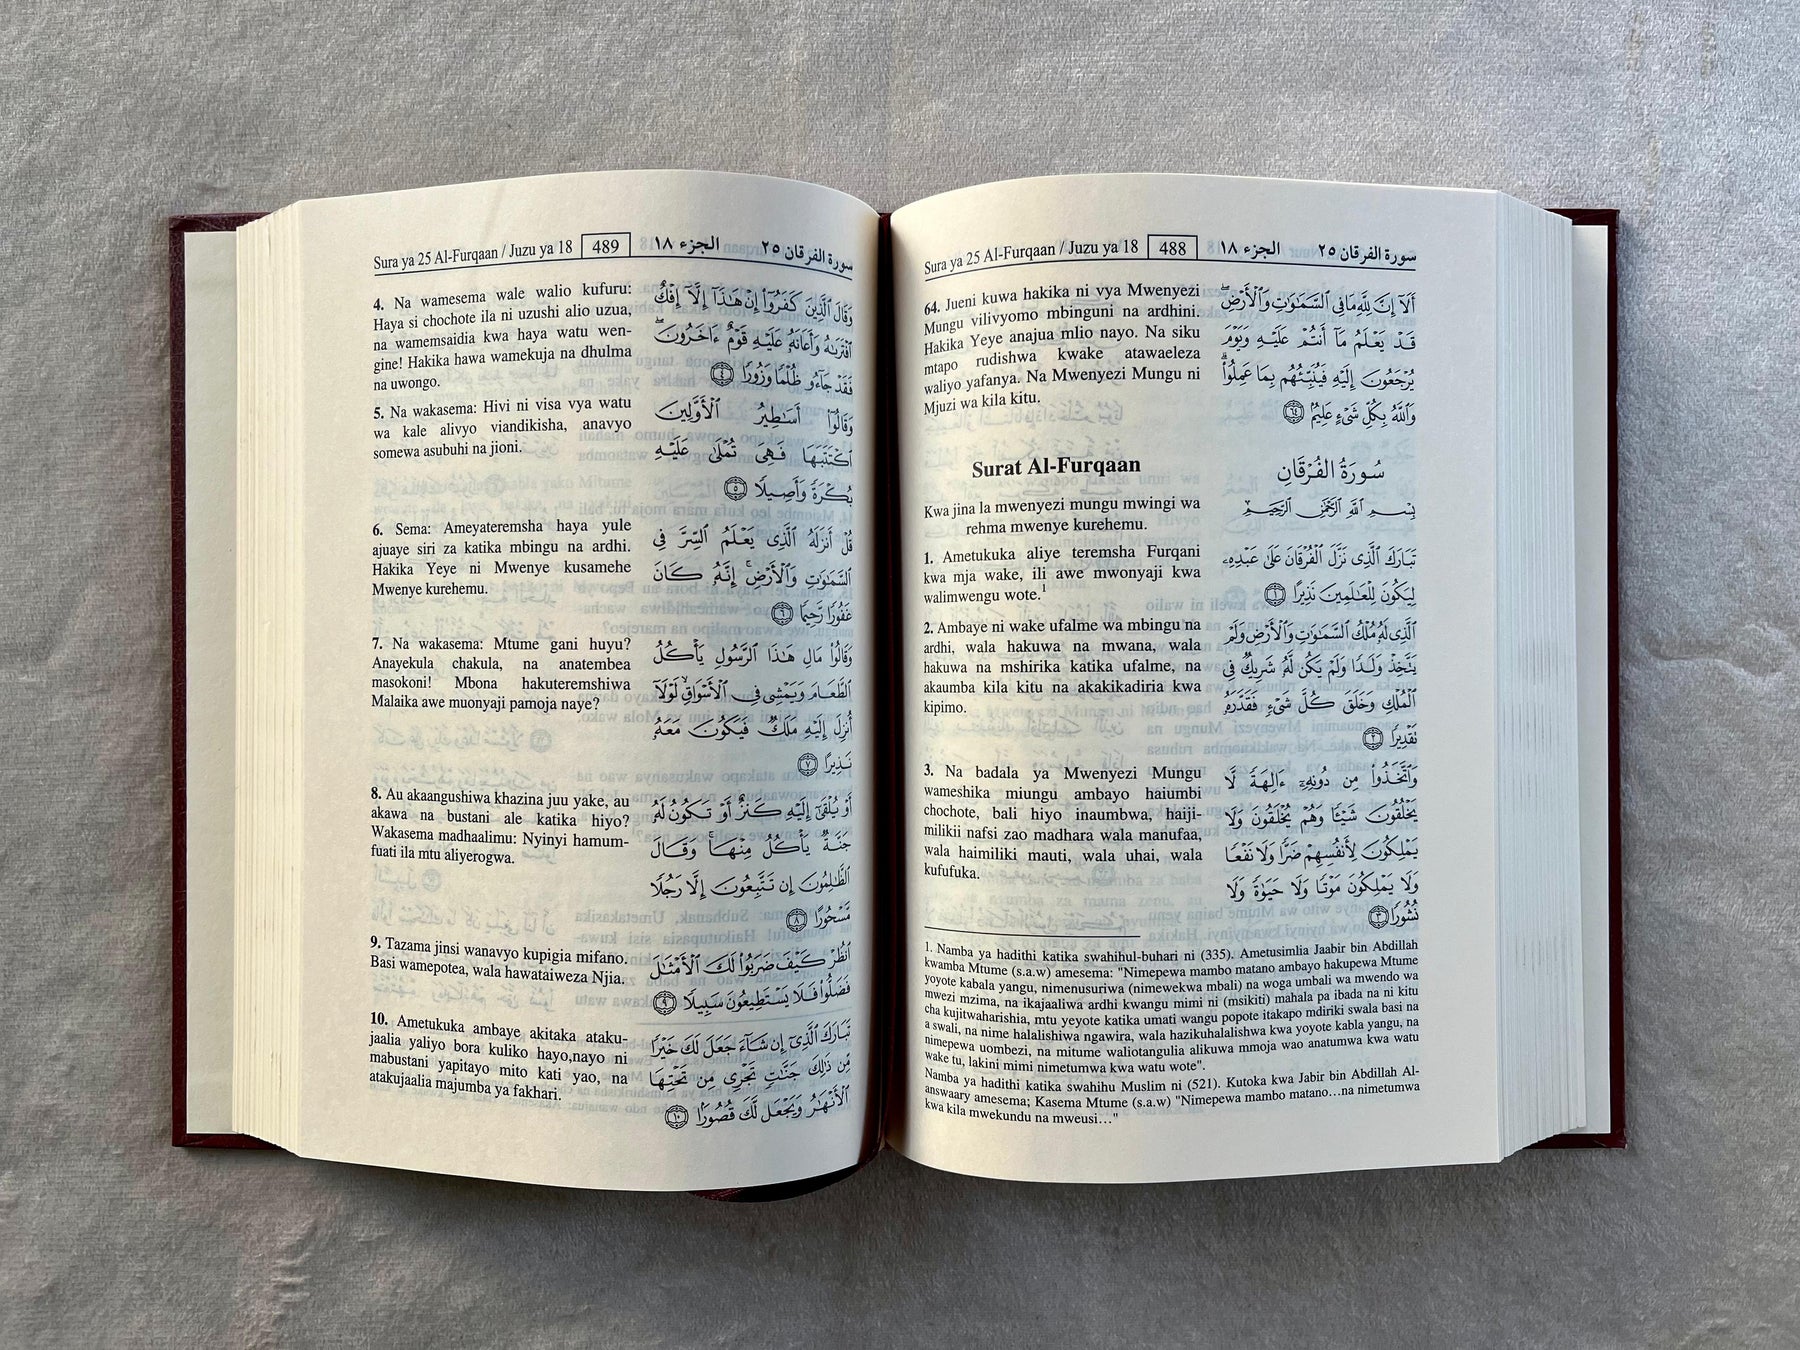 Sura ya 25 Al-Furqaan / Juzu ya 18 488 الجزء ١٨ سورة الفرقان ٢٥
64. Jueni kuwa hakika ni vya Mwenyezi
Mungu vilivyomo mbinguni na ardhini.
Hakika Yeye anajua mlio nayo. Na siku
mtapo rudishwa kwake atawaeleza
waliyo yafanya. Na Mwenyezi Mungu ni
Mjuzi wa kila kitu.
Surat Al-Furqaan
Kwa jina la mwenyezi mungu mwingi wa
rehma mwenye kurehemu.
1. Ametukuka aliye teremsha Furqani
kwa mja wake, ili awe mwonyaji kwa
walimwengu wote.1
2. Ambaye ni wake ufalme wa mbingu na
ardhi, wala hakuwa na mwana, wala
hakuwa na mshirika katika ufalme, na
akaumba kila kitu na akakikadiria kwa
kipimo.
3. Na badala ya Mwenyezi Mungu
wameshika miungu ambayo haiumbi
chochote, bali hiyo inaumbwa, haiji-
milikii nafsi zao madhara wala manufaa,
wala haimiliki mauti, wala uhai, wala
kufufuka.
أَلَآ إِنَّ لِلَّهِ مَا فِي السَّمَٰوَٰتِ وَالْأَرْضِ ۖ
قَدْ يَعْلَمُ مَآ أَنتُمْ عَلَيْهِ وَيَوْمَ
يُرْجَعُونَ إِلَيْهِ فَيُنَبِّئُهُم بِمَا عَمِلُوا ۗ
وَاللَّهُ بِكُلِّ شَيْءٍ عَلِيمٌ ٦٤
سُورَةُ الْفُرْقَانِ
بِسْمِ اللَّهِ الرَّحْمَٰنِ الرَّحِيمِ
تَبَارَكَ الَّذِي نَزَّلَ الْفُرْقَانَ عَلَىٰ عَبْدِهِ
لِيَكُونَ لِلْعَالَمِينَ نَذِيرًا ١
الَّذِي لَهُ مُلْكُ السَّمَٰوَٰتِ وَالْأَرْضِ وَلَمْ
يَتَّخِذْ وَلَدًا وَلَمْ يَكُن لَّهُ شَرِيكٌ فِي
الْمُلْكِ وَخَلَقَ كُلَّ شَيْءٍ فَقَدَّرَهُ
تَقْدِيرًا ٢
وَاتَّخَذُوا مِن دُونِهِ ءَالِهَةً لَّا
يَخْلُقُونَ شَيْئًا وَهُمْ يُخْلَقُونَ وَلَا
يَمْلِكُونَ لِأَنفُسِهِمْ ضَرًّا وَلَا نَفْعًا
وَلَا يَمْلِكُونَ مَوْتًا وَلَا حَيَوٰةً وَلَا
نُشُورًا ٣
1. Namba ya hadithi katika swahihul-buhari ni (335). Ametusimlia Jaabir bin Abdillah
kwamba Mtume (s.a.w) amesema: "Nimepewa mambo matano ambayo hakupewa Mtume
yoyote kabala yangu, nimenusuriwa (nimewekwa mbali) na woga umbali wa mwendo wa
mwezi mzima, na ikajaaliwa ardhi kwangu mimi ni (msikiti) mahala pa ibada na ni kitu
cha kujitwaharishia, mtu yeyote katika umati wangu popote itakapo mdiriki swala basi na
a swali, na nime halalishiwa ngawira, wala hazikuhalalishwa kwa yoyote kabla yangu, na
nimepewa uombezi, na mitume waliotangulia alikuwa mmoja wao anatumwa kwa watu
wake tu, lakini mimi nimetumwa kwa watu wote".
Namba ya hadithi katika swahihu Muslim ni (521). Kutoka kwa Jabir bin Abdillah Al-
answaary amesema; Kasema Mtume (s.a.w) "Nimepewa mambo matano…na nimetumwa
kwa kila mwekundu na mweusi…"
Sura ya 25 Al-Furqaan / Juzu ya 18 489 الجزء ١٨ سورة الفرقان ٢٥
4. Na wamesema wale walio kufuru:
Haya si chochote ila ni uzushi alio uzua,
na wamemsaidia kwa haya watu wen-
gine! Hakika hawa wamekuja na dhulma
na uwongo.
5. Na wakasema: Hivi ni visa vya watu
wa kale alivyo viandikisha, anavyo
somewa asubuhi na jioni.
6. Sema: Ameyateremsha haya yule
ajuaye siri za katika mbingu na ardhi.
Hakika Yeye ni Mwenye kusamehe
Mwenye kurehemu.
7. Na wakasema: Mtume gani huyu?
Anayekula chakula, na anatembea
masokoni! Mbona hakuteremshiwa
Malaika awe muonyaji pamoja naye?
8. Au akaangushiwa khazina juu yake, au
akawa na bustani ale katika hiyo?
Wakasema madhaalimu: Nyinyi hamum-
fuati ila mtu aliyerogwa.
9. Tazama jinsi wanavyo kupigia mifano.
Basi wamepotea, wala hawataiweza Njia.
10. Ametukuka ambaye akitaka ataku-
jaalia yaliyo bora kuliko hayo,nayo ni
mabustani yapitayo mito kati yao, na
atakujaalia majumba ya fakhari.
وَقَالَ الَّذِينَ كَفَرُوا إِنْ هَٰذَآ إِلَّآ إِفْكٌ
افْتَرَىٰهُ وَأَعَانَهُ عَلَيْهِ قَوْمٌ ءَاخَرُونَ ۖ
فَقَدْ جَآءُو ظُلْمًا وَزُورًا ٤
وَقَالُوا أَسَٰطِيرُ الْأَوَّلِينَ
اكْتَتَبَهَا فَهِيَ تُمْلَىٰ عَلَيْهِ
بُكْرَةً وَأَصِيلًا ٥
قُلْ أَنزَلَهُ الَّذِي يَعْلَمُ السِّرَّ فِي
السَّمَٰوَٰتِ وَالْأَرْضِ ۚ إِنَّهُ كَانَ
غَفُورًا رَّحِيمًا ٦
وَقَالُوا مَالِ هَٰذَا الرَّسُولِ يَأْكُلُ
الطَّعَامَ وَيَمْشِي فِي الْأَسْوَاقِ ۙ لَوْلَآ
أُنزِلَ إِلَيْهِ مَلَكٌ فَيَكُونَ مَعَهُ
نَذِيرًا ٧
أَوْ يُلْقَىٰٓ إِلَيْهِ كَنزٌ أَوْ تَكُونُ لَهُ
جَنَّةٌ يَأْكُلُ مِنْهَا ۚ وَقَالَ
الظَّٰلِمُونَ إِن تَتَّبِعُونَ إِلَّا رَجُلًا
مَّسْحُورًا ٨
انظُرْ كَيْفَ ضَرَبُوا لَكَ الْأَمْثَٰلَ
فَضَلُّوا فَلَا يَسْتَطِيعُونَ سَبِيلًا ٩
تَبَارَكَ الَّذِي إِن شَآءَ جَعَلَ لَكَ خَيْرًا
مِّن ذَٰلِكَ جَنَّٰتٍ تَجْرِي مِن تَحْتِهَا
الْأَنْهَٰرُ وَيَجْعَل لَّكَ قُصُورًا ١٠